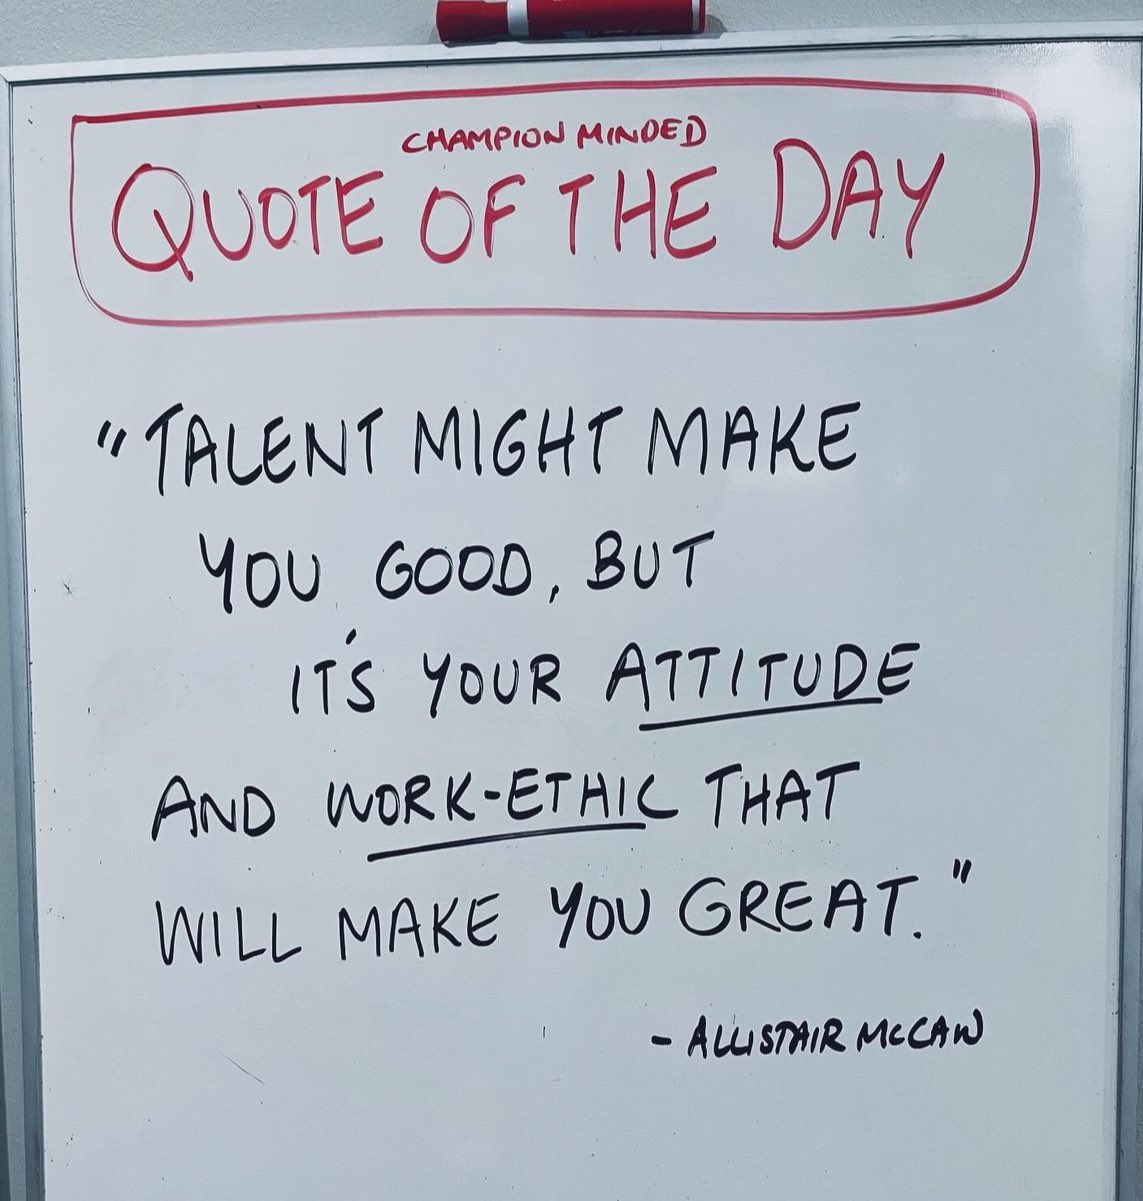 CHAMPION MINDED
QUOTE OF THE DAY
"TALENT MIGHT MAKE
YOU GOOD, BUT
IT'S YOUR ATTITUDE
AND WORK-ETHIC THAT
WILL MAKE YOU GREAT."
- ALLISTAIR McCAW